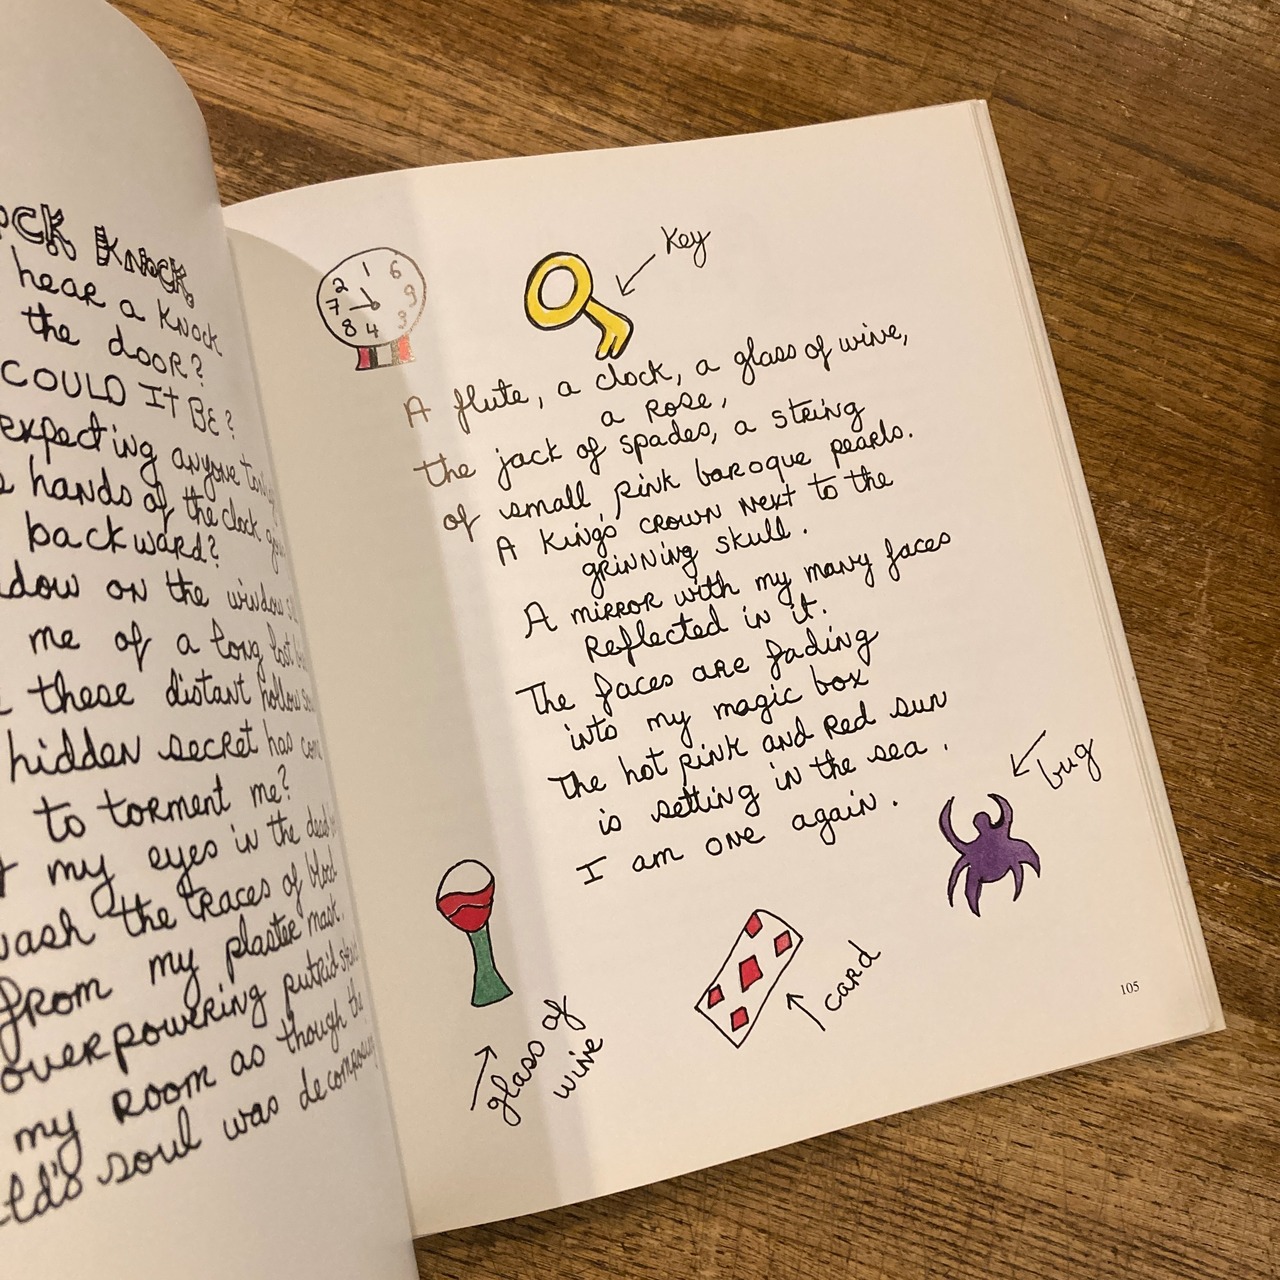 OCK KNOCK
hear a knock
the door?
COULD IT BE?
expecting anyone
hands of the clock
backward?
on the
me of a long lost
these distant hollow
hidden secret has
to torment me?
my eyes in the
the traces of blood
from my plaster mask.
overpowering putrid
my room as though the
soul was
1 6 9 3 4 8 7 2
Key
A flute, a clock, a glass of wine,
a rose,
the jack of spades, a string
of small pink baroque pearls.
A King's crown next to the
grinning skull.
A mirror with my many faces
Reflected in it.
The faces are fading
into my magic box
The hot pink and red sun
is setting in the sea.
I am one again.
bug
glass of
wine
card
105